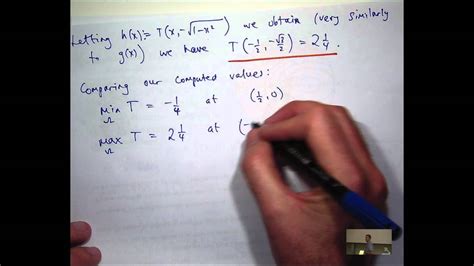 Letting h(x):= T(x, -√(1-x²)) we obtain (very similarly
to g(x)) we have T(-1/2, -√3/2) = 2 1/4.
Comparing our computed values:
min T = -1/4 at (1/2, 0)
Ω
max T = 2 1/4 at (-
Ω